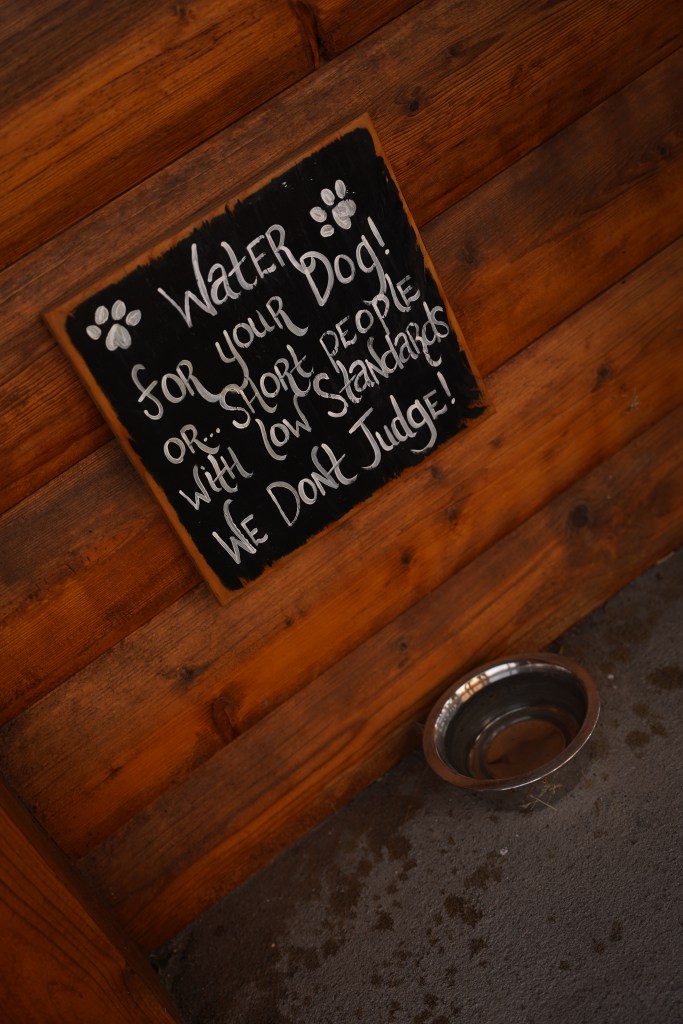 WatER
foR youR Dog!
oR... SHORt PEOPLE
witH low StandaRds
WE Dont Judge!